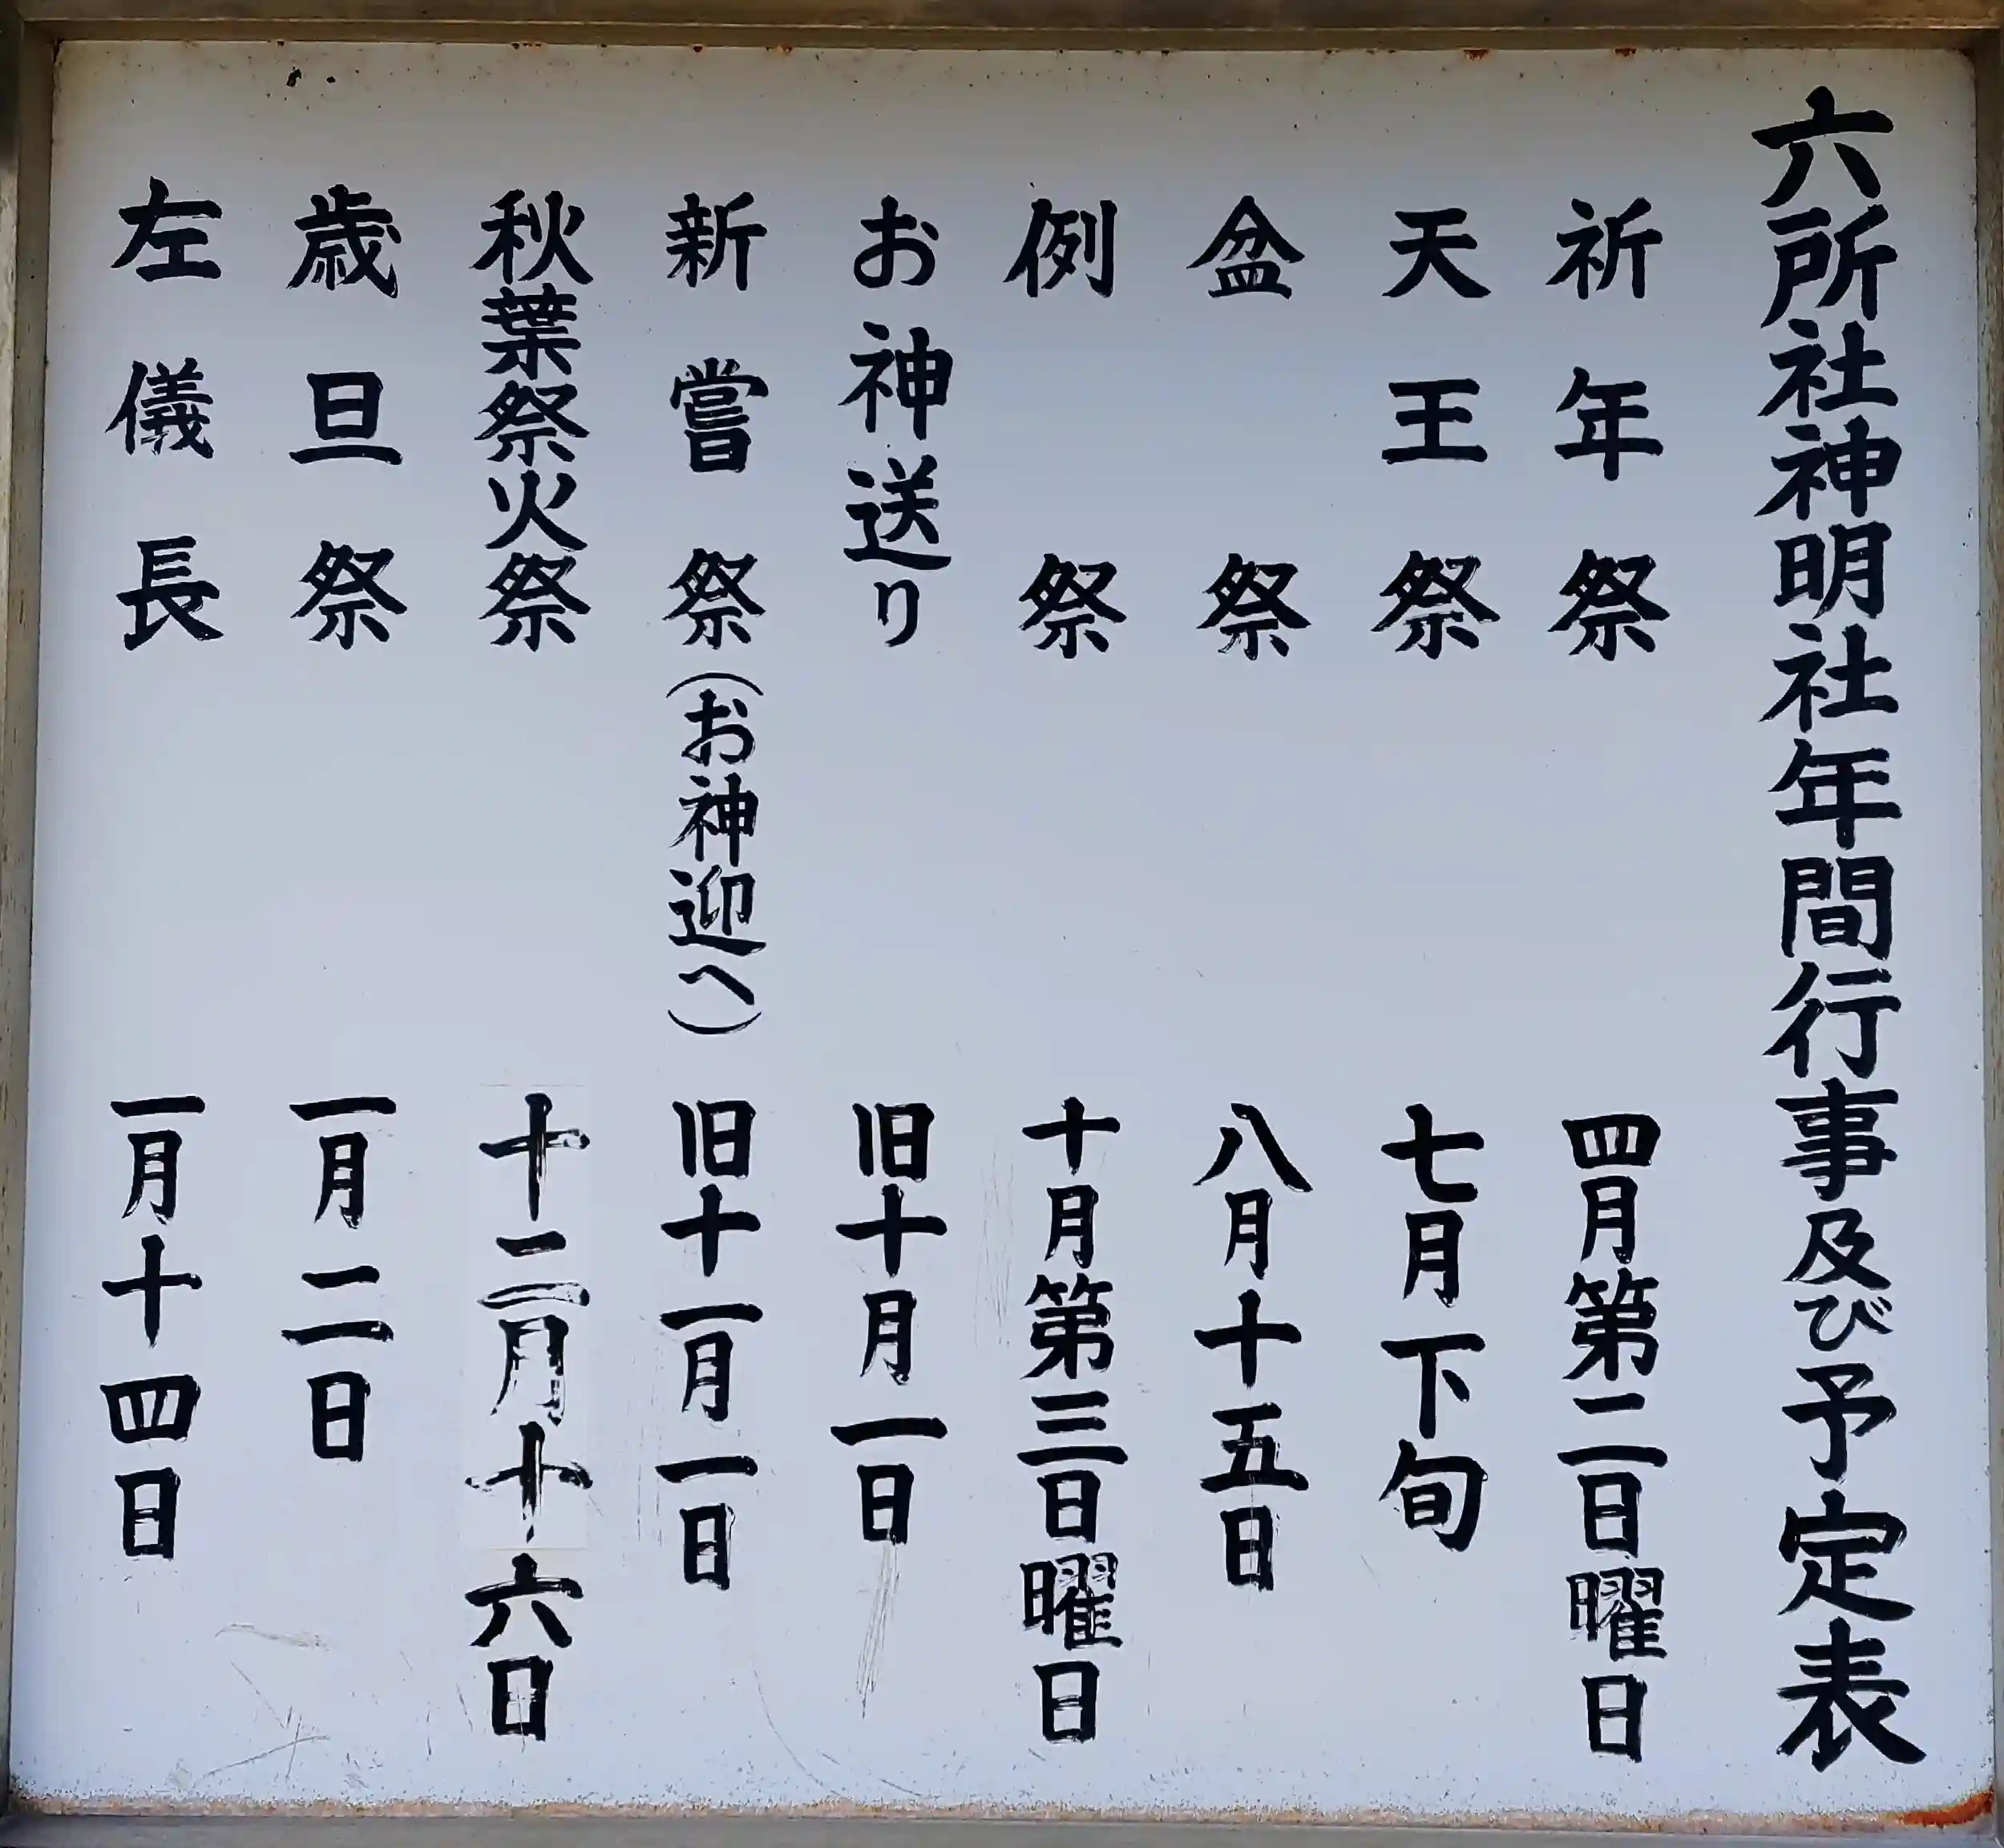 六所社神明社年間行事及び予定表
祈年祭 四月第二日曜日
天王祭 七月下旬
盆祭 八月十五日
例祭 十月第三日曜日
お神送り 旧十月一日
新嘗祭(お神迎へ) 旧十一月一日
秋葉祭火祭 十二月十六日
歳旦祭 一月二日
左儀長 一月十四日